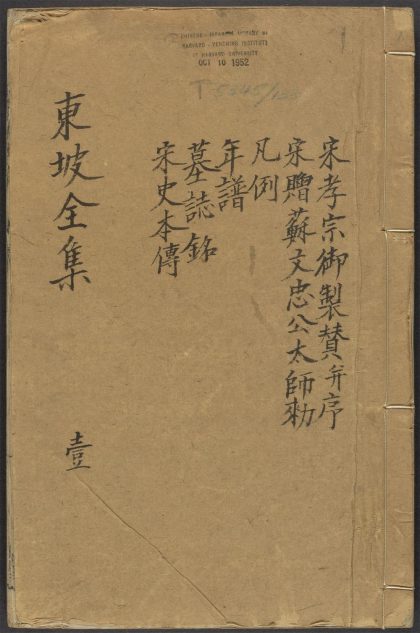 宋孝宗御製賛并序
宋贈蘇文忠公太師勑
凡例
年譜
墓誌銘
宋史本傳
東坡全集
壹
CHINESE-JAPANESE LIBRARY OF
HARVARD-YENCHING INSTITUTE
AT HARVARD UNIVERSITY
OCT 10 1952